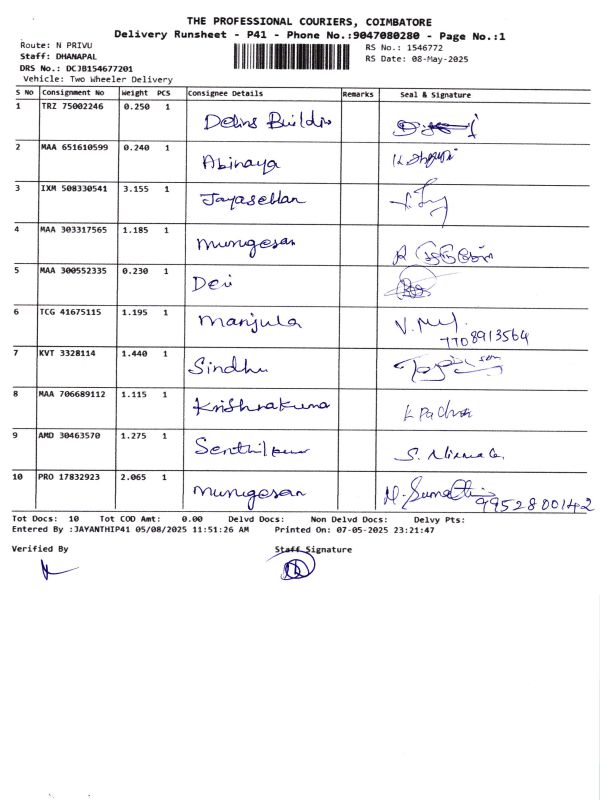 THE PROFESSIONAL COURIERS, COIMBATORE
Delivery Runsheet - P41 - Phone No.:9047080280 - Page No.:1
Route: N PRIVU
Staff: DHANAPAL
DRS No.: DCJB154677201
Vehicle: Two Wheeler Delivery
RS No.: 1546772
RS Date: 08-May-2025
S No Consignment No Weight PCS Consignee Details Remarks Seal & Signature
1 TRZ 75002246 0.250 1
2 MAA 651610599 0.240 1 Abinaya
3 IXM 508330541 3.155 1 Jayaseelan
4 MAA 303317565 1.185 1 Murugesan
5 MAA 300552335 0.230 1 Devi
6 TCG 41675115 1.195 1 Manjula
7708913564
7 KVT 3328114 1.440 1 Sindhu
8 MAA 706689112 1.115 1
9 AMD 30463570 1.275 1 S. Nirmala
10 PRO 17832923 2.065 1 Murugesan
9952800142
Tot Docs: 10 Tot COD Amt: 0.00 Delvd Docs: Non Delvd Docs: Delvy Pts:
Entered By :JAYANTHIP41 05/08/2025 11:51:26 AM Printed On: 07-05-2025 23:21:47
Verified By Staff Signature